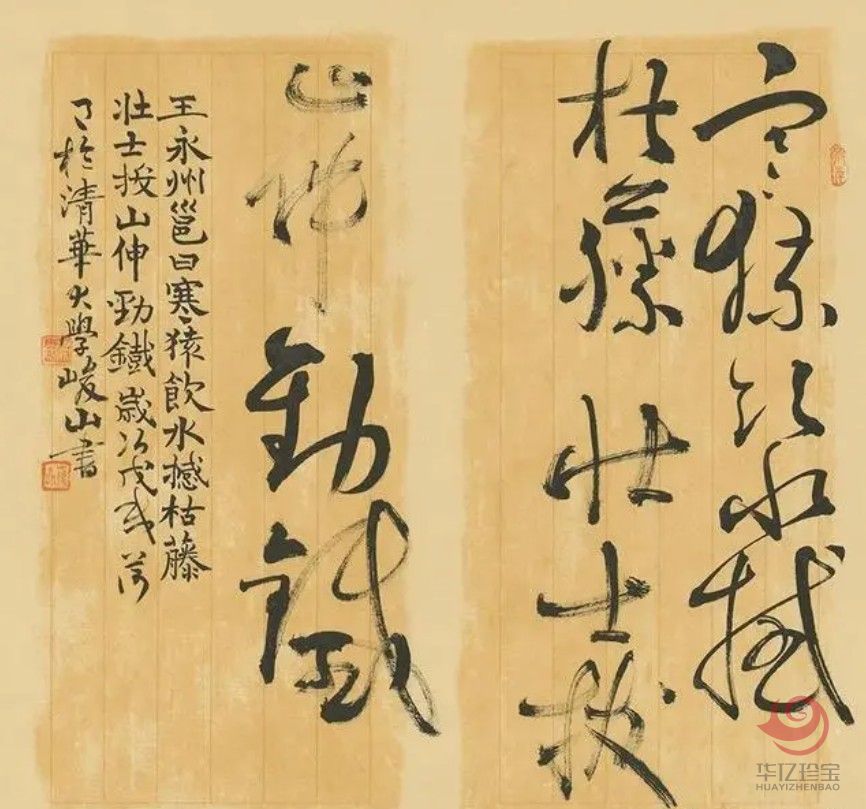 寒猿飲水撼
枯藤壯士拔
山伸勁鐵
王永州邕曰寒猿飲水撼枯藤
壯士拔山伸勁鐵歲次戊戌
於清華大學峻山書
华亿珍宝
HUAYIZHENBAO